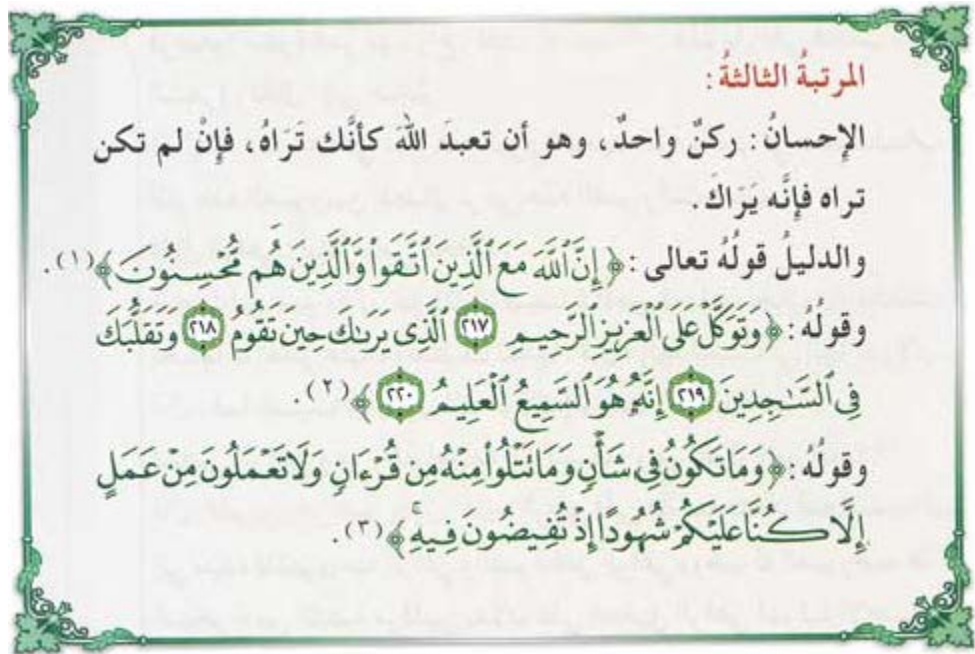 المرتبةُ الثالثةُ:
الإحسانُ: ركنٌ واحدٌ، وهو أن تعبدَ اللهَ كأنَّك تَرَاهُ، فإنْ لم تكن
تراه فإنَّه يَرَاكَ.
والدليلُ قولُهُ تعالى: ﴿إِنَّ ٱللَّهَ مَعَ ٱلَّذِينَ ٱتَّقَوا۟ وَّٱلَّذِينَ هُم مُّحْسِنُونَ﴾(١).
وقولُهُ: ﴿وَتَوَكَّلْ عَلَى ٱلْعَزِيزِ ٱلرَّحِيمِ ٢١٧ ٱلَّذِى يَرَىٰكَ حِينَ تَقُومُ ٢١٨ وَتَقَلُّبَكَ
فِى ٱلسَّـٰجِدِينَ ٢١٩ إِنَّهُۥ هُوَ ٱلسَّمِيعُ ٱلْعَلِيمُ ٢٢٠﴾(٢).
وقولُهُ: ﴿وَمَا تَكُونُ فِى شَأْنٍ وَمَا تَتْلُوا۟ مِنْهُ مِن قُرْءَانٍ وَلَا تَعْمَلُونَ مِنْ عَمَلٍ
إِلَّا كُنَّا عَلَيْكُمْ شُهُودًا إِذْ تُفِيضُونَ فِيهِ﴾(٣).